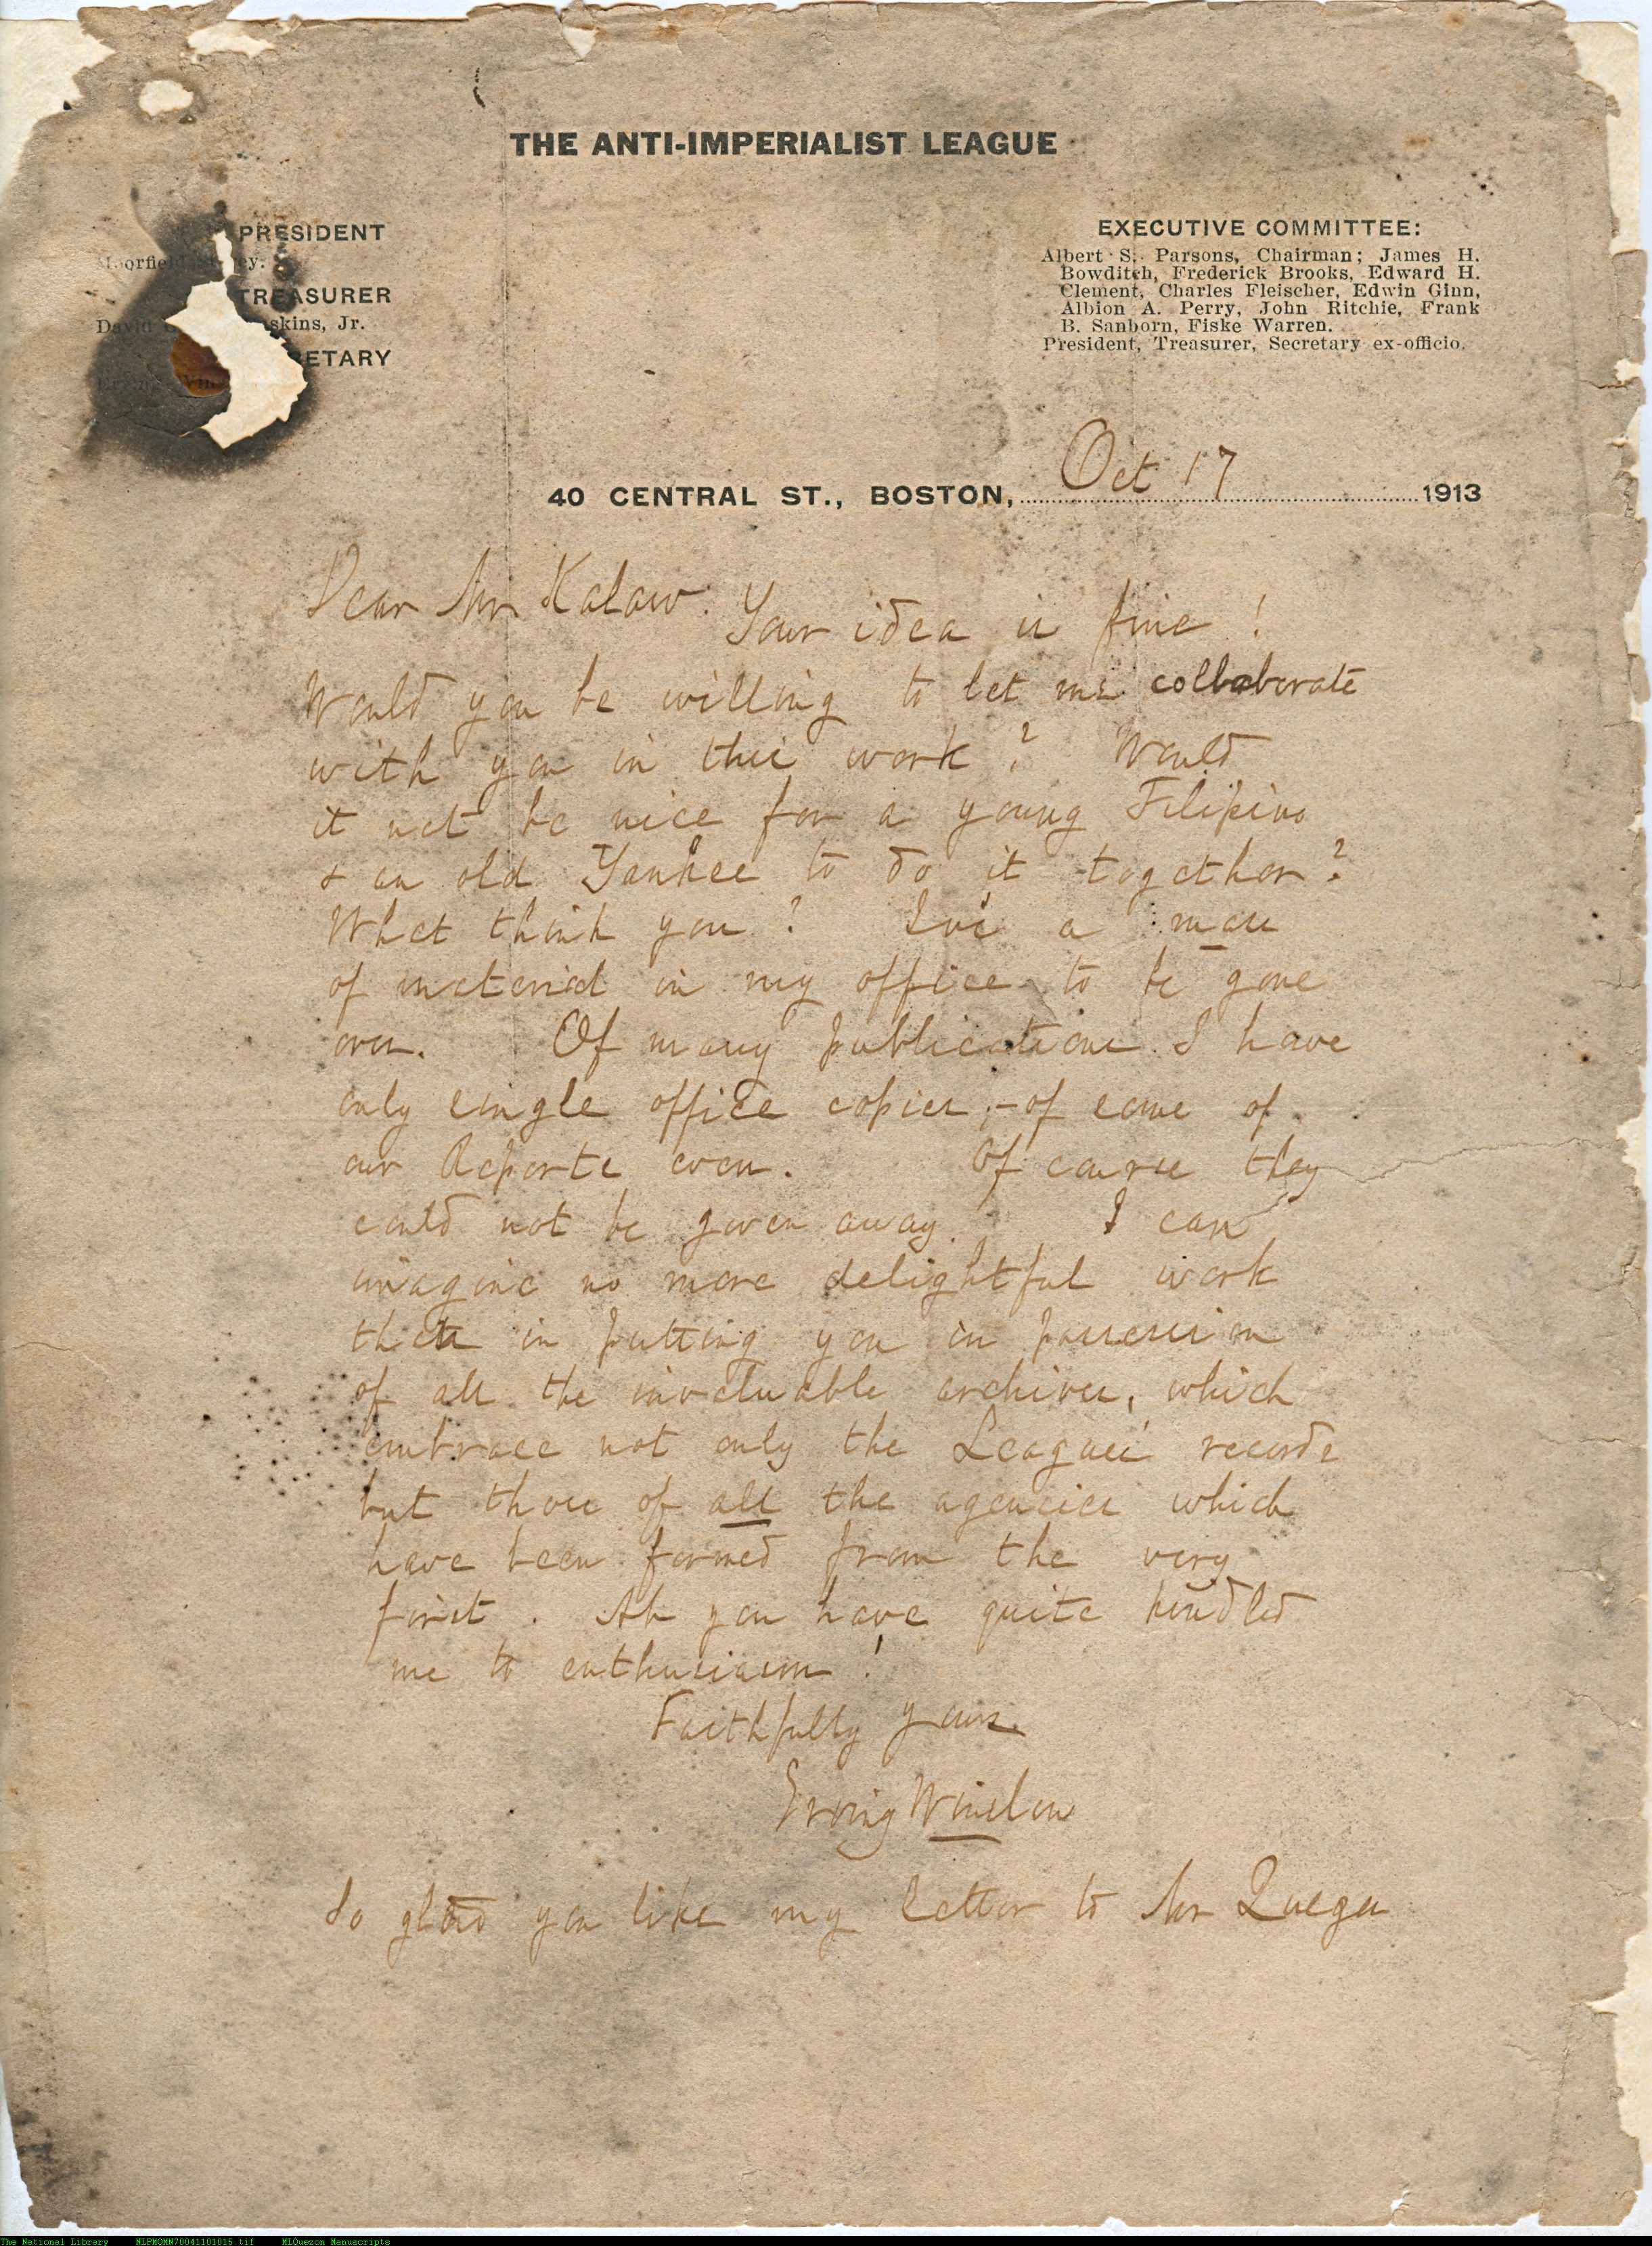 THE ANTI-IMPERIALIST LEAGUE
PRESIDENT
TREASURER
skins, Jr.
ETARY
EXECUTIVE COMMITTEE:
Albert S. Parsons, Chairman; James H.
Bowditch, Frederick Brooks, Edward H.
Clement, Charles Fleischer, Edwin Ginn,
Albion A. Perry, John Ritchie, Frank
B. Sanborn, Fiske Warren.
President, Treasurer, Secretary ex-officio.
40 CENTRAL ST., BOSTON, Oct 17 1913
Dear Mr Kalaw. Your idea is fine!
Would you be willing to let me collaborate
with you in this work? Would
it not be nice for a young Filipino
& an old Yankee to do it together?
What think you? I've a mass
of material in my office to be gone
over. Of many publications I have
only single office copies,- of some of
our Reports even. Of course they
could not be given away. I can
imagine no more delightful work
than in putting you in possession
of all the invaluable archives, which
embrace not only the League's records
but those of all the agencies which
have been formed from the very
first. Ah you have quite kindled
me to enthusiasm!
Faithfully yours.
Erving Winslow
So glad you like my letter to Mr Quezon
The National Library NLPMQMN70041101015.tif MLQuezon Manuscripts